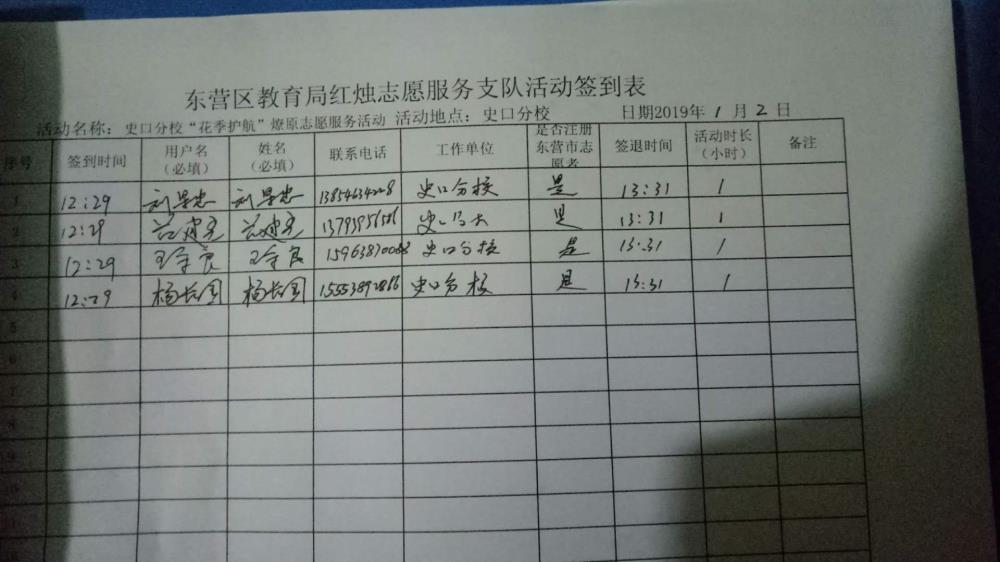 东营区教育局红烛志愿服务支队活动签到表
活动名称：史口分校“花季护航”燎原志愿服务活动 活动地点：史口分校 日期2019年1月2日
序号 签到时间 用户名（必填） 姓名（必填） 联系电话 工作单位 是否注册东营市志愿者 签退时间 活动时长（小时） 备注
1 12:29 史口分校 是 13:31 1
2 12:29 是 13:31 1
3 12:29 史口分校 是 13:31 1
4 12:29 杨长国 杨长国 史口分校 是 13:31 1
5
6
7
8
9
10
11